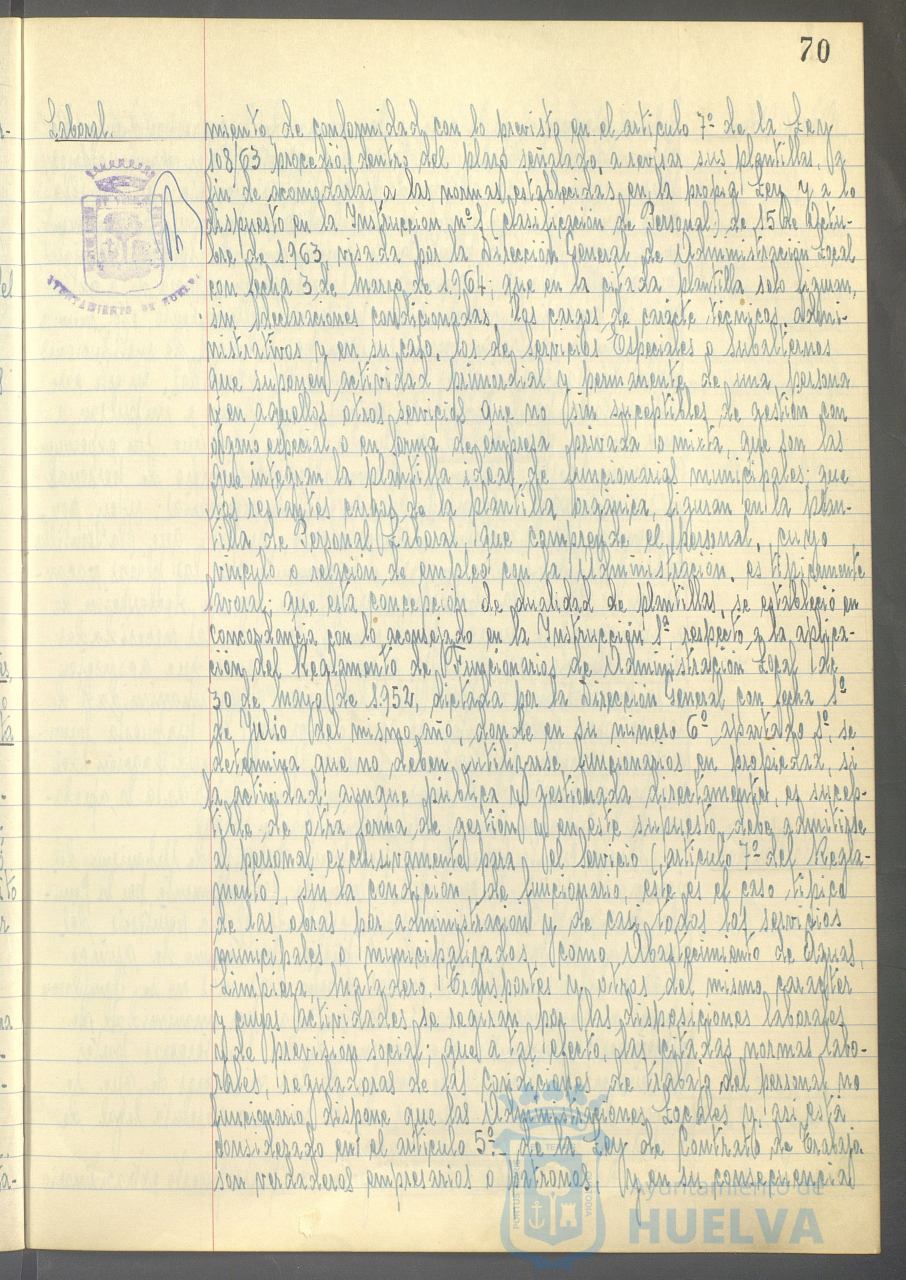 70
Laboral.
miento de conformidad con lo previsto en el artículo 7º de la Ley
108/63 procedió, dentro del plazo señalado, a revisar sus plantillas, a
fin de acomodarlas a las normas establecidas en la propia Ley y a lo
dispuesto en la Instrucción nº 1 (clasificación de Personal) de 15 de Octu-
bre de 1.963, visada por la Dirección General de Administración Local
con fecha 3 de marzo de 1.964; que en la citada plantilla solo figuran,
sin declaraciones condicionadas, los cargos de carácte técnicos, admi-
nistrativos y en su caso, los de Servicios Especiales o Subalternos
que suponen actividad primordial y permanente de una persona
y en aquellos otros servicios que no sin susceptibles de gestión con
órgano especial o en forma de empresa privada o mixta, que son las
que integran la plantilla ideal de funcionarios municipales; que
los restantes cargos de la plantilla orgánica, figuran en la plan-
tilla de Personal Laboral, que comprende el personal, cuyo
vínculo o relación de empleo con la Administración, es típicamente
lavoral; que esta concepción de dualidad de plantillas, se estableció en
concordancia con lo aconsejado en la Instrucción 1ª, respecto a la aplica-
ción del Reglamento de Funcionarios de Administración Local de
30 de mayo de 1.952, dictada por la Dirección General con fecha 1º
de Julio del mismo año, donde en su número 6º, apartado 1º, se
determina que no deben utilizarse funcionarios en propiedad, si
la actividad, aunque pública y gestionada directamente, es suscep-
tible de otra forma de gestión y en este supuesto debe admitirse
al personal exclusivamente para el Servicio (artículo 7º del Regla-
mento), sin la condición de funcionario, este es el caso típico
de las obras por administración y de casi todos los servicios
municipales o municipalizados, como Abastecimiento de Aguas,
Limpieza, Matadero, Transportes y otros del mismo caracter
y cuyas actividades se regiran por las disposiciones laborales
y de previsión social; que a tal efecto, las citadas normas labo-
rales, reguladoras de las condiciones de trabajo del personal no
funcionario, dispone que las Administraciones Locales y así está
considerado en el artículo 5º de la Ley de Contrato de Trabajo
son verdaderos empresarios o patronos. Y en su consecuencia
AYUNTAMIENTO DE HUELVA
Ayuntamiento de
HUELVA